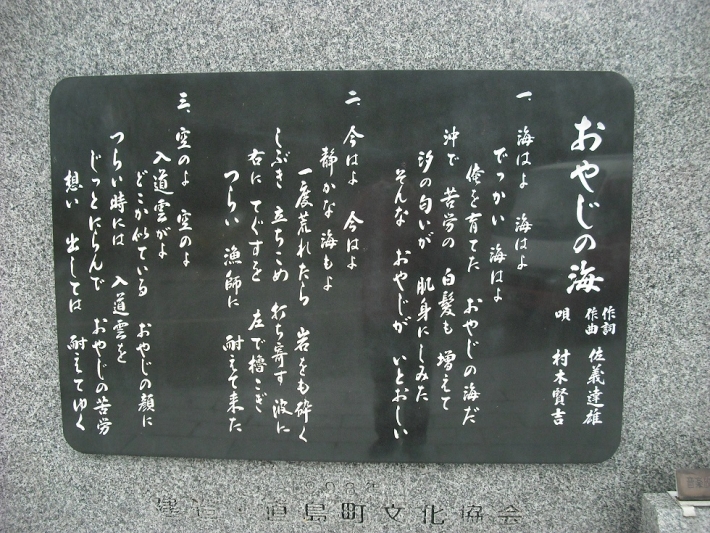 おやじの海
作詞
作曲 佐義達雄
唄 村木賢吉
一、海はよ 海はよ
でっかい 海はよ
俺を育てた おやじの海だ
沖で 苦労の 白髪も 増えて
汐の匂いが 肌身にしみた
そんな おやじが いとおしい
二、今はよ 今はよ
静かな 海もよ
一度荒れたら 岩をも砕く
しぶき 立ちこめ 打ち寄す 波に
右に てぐすを 左で 櫓こぎ
つらい 漁師に 耐えて来た
三、空のよ 空のよ
入道雲がよ
どこか似ている おやじの顔に
つらい時には 入道雲を
じっとにらんで おやじの苦労
想い 出しては 耐えてゆく
建造・直島町文化協会